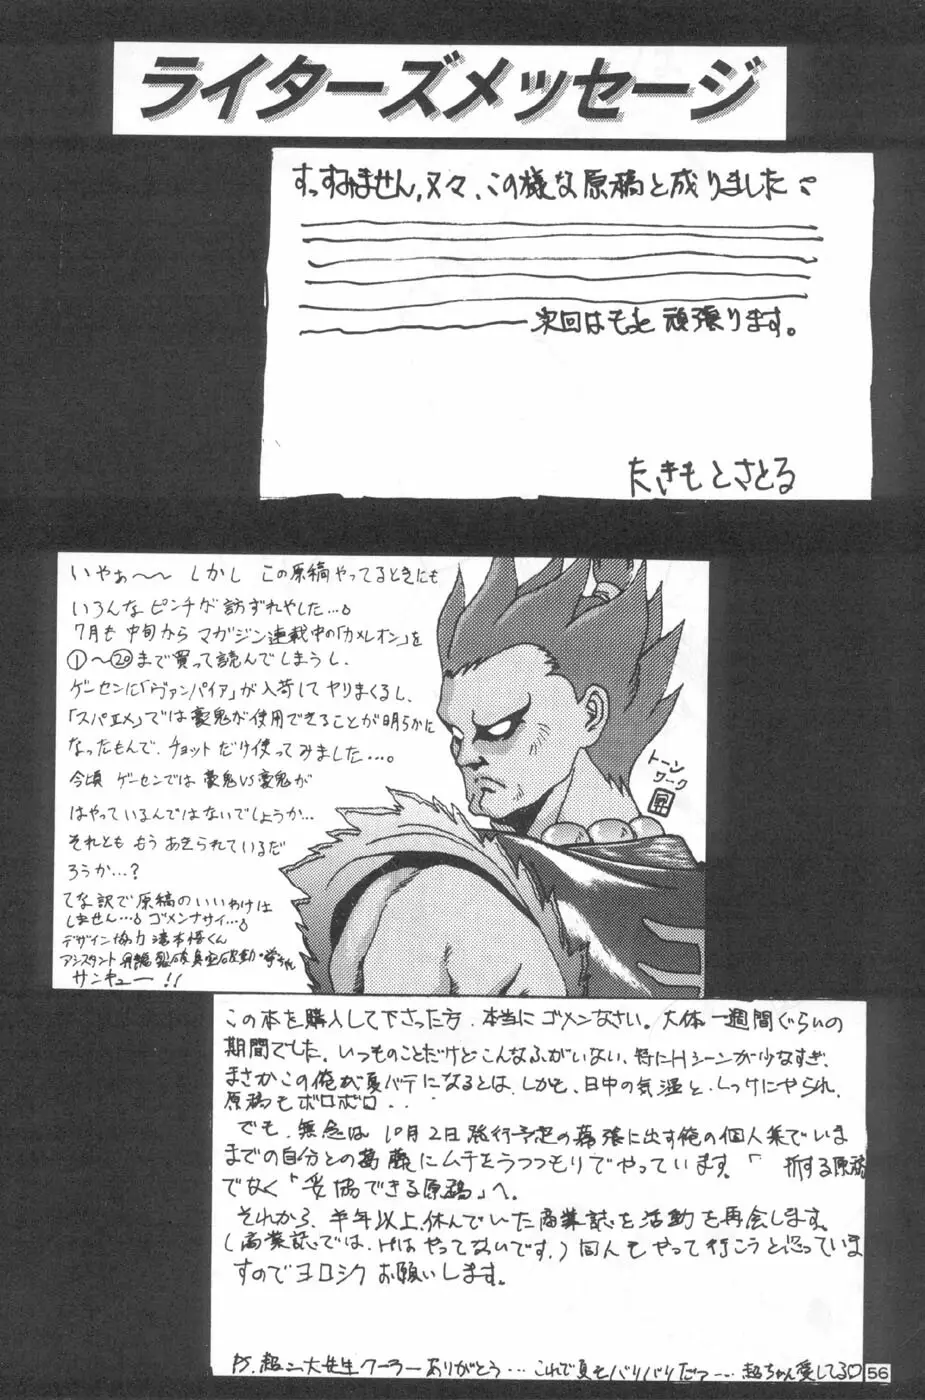 ライターズメッセージ
すっすみません,又々、この様な原稿と成りました
次回はもっと頑張ります。
たきもとさとる
いやぁ〜〜 しかし この原稿やってるときにも
いろんなピンチが訪ずれやした…。
7月も中旬からマガジン連載中の「カメレオン」を
①〜⑳まで買って読んでしまうし、
ゲーセンに「ヴァンパイア」が入荷してヤりまくるし、
「スパエⅡ」では豪鬼が使用できることが明らかに
なったもんで、チョットだけ使ってみました…。
今頃 ゲーセンでは豪鬼VS豪鬼が
はやっているんではないでしょうか…
それとも もう あきられているだ
ろうか…?
てな訳で原稿のいいわけは
しません…。ゴメンナサイ…。
デザイン協力 滝本悟くん
アシスタント
サンキュー!!
トーン
ワーク
昇
この本を購入して下さった方、本当にゴメンなさい。大体一週間ぐらいの
期間でした。いつものことだけどこんなふがいない、特にHシーンが少なすぎ、
まさかこの俺が夏バテになるとは、しかも、日中の気温と、しっけにやられ、
原稿もボロボロ・・
でも、無念は10月2日発行予定の幕張に出す俺の個人集でいま
までの自分との葛藤にムチをうつつもりでやっています。「 折する原稿
でなく「妥協できる原稿」へ。
それから、半年以上休んでいた商業誌を活動を再会します。
(商業誌では、Hはやってないです。)同人もやって行こうと思っていま
すのでヨロシクお願いします。
P.S. 超二大先生クーラーありがとう…これで夏もバリバリだっ…超ちゃん愛してる♡
56